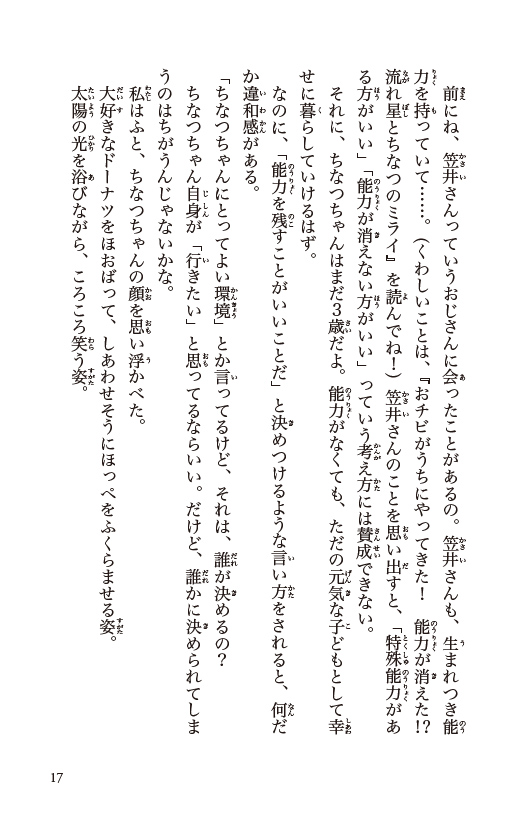 前にね、笠井さんっていうおじさんに会ったことがあるの。笠井さんも、生まれつき能
力を持っていて……。（くわしいことは、『おチビがうちにやってきた！　能力が消えた!?
流れ星とちなつのミライ』を読んでね！）笠井さんのことを思い出すと、「特殊能力があ
る方がいい」「能力が消えない方がいい」っていう考え方には賛成できない。
　それに、ちなつちゃんはまだ３歳だよ。能力がなくても、ただの元気な子どもとして幸
せに暮らしていけるはず。
　なのに、「能力を残すことがいいことだ」と決めつけるような言い方をされると、何だ
か違和感がある。
「ちなつちゃんにとってよい環境」とか言ってるけど、それは、誰が決めるの？
　ちなつちゃん自身が「行きたい」と思ってるならいい。だけど、誰かに決められてしま
うのはちがうんじゃないかな。
　私はふと、ちなつちゃんの顔を思い浮かべた。
　大好きなドーナツをほおばって、しあわせそうにほっぺをふくらませる姿。
　太陽の光を浴びながら、ころころ笑う姿。
17